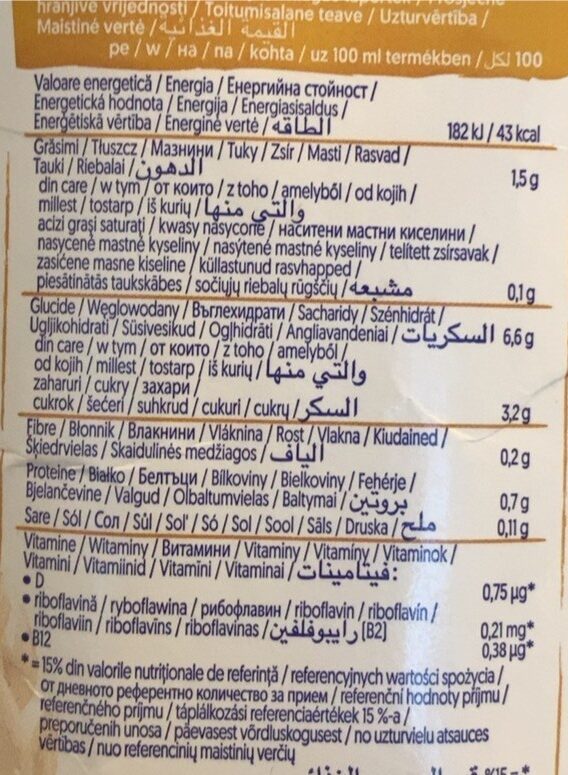 hranjive vrijednosti / Toitumisalane teave / Uzturvērtība /
Maistinė vertė / القيمة الغذائية
pe / w / на / na / kohta / uz 100 ml termékben / لكل 100
Valoare energetică / Energia / Енергийна стойност /
Energetická hodnota / Energija / Energiasisaldus /
Enerģētiskā vērtība / Energinė vertė / الطاقة 182 kJ / 43 kcal
Grăsimi / Tłuszcz / Мазнини / Tuky / Zsír / Masti / Rasvad /
Tauki / Riebalai / الدهون 1,5 g
din care / w tym / от които / z toho / amelyből / od kojih /
millest / tostarp / iš kurių / والتي منها
acizi grași saturați / kwasy nasycone / наситени мастни киселини /
nasycené mastné kyseliny / nasýtené mastné kyseliny / telített zsírsavak /
zasićene masne kiseline / küllastunud rasvhapped /
piesātinātās taukskābes / sočiųjų riebalų rūgščių / مشبعة 0,1 g
Glucide / Węglowodany / Въглехидрати / Sacharidy / Szénhidrát /
Ugljikohidrati / Süsivesikud / Ogļhidrāti / Angliavandeniai / السكريات 6,6 g
din care / w tym / от които / z toho / amelyből /
od kojih / millest / tostarp / iš kurių / والتي منها
zaharuri / cukry / захари /
cukrok / šećeri / suhkrud / cukuri / cukrų / السكر 3,2 g
Fibre / Błonnik / Влакнини / Vláknina / Rost / Vlakna / Kiudained /
Šķiedrvielas / Skaidulinės medžiagos / ألياف 0,2 g
Proteine / Białko / Белтъци / Bílkoviny / Bielkoviny / Fehérje /
Bjelančevine / Valgud / Olbaltumvielas / Baltymai / بروتين 0,7 g
Sare / Sól / Сол / Sůl / Soľ / Só / Sol / Sool / Sāls / Druska / ملح 0,11 g
Vitamine / Witaminy / Витамини / Vitaminy / Vitamíny / Vitaminok /
Vitamini / Vitamiinid / Vitamīni / Vitaminai / فيتامينات:
• D 0,75 µg*
• riboflavină / ryboflawina / рибофлавин / riboflavin / riboflavín /
riboflaviin / riboflavīns / riboflavinas / رايبوفلفين [B2] 0,21 mg*
• B12 0,38 µg*
* = 15% din valorile nutriționale de referință / referencyjnych wartości spożycia /
от дневното референтно количество за прием / referenční hodnoty příjmu /
referenčného príjmu / táplálkozási referenciaértékek 15 %-a /
preporučenih unosa / päevasest võrdluskogusest / no uzturvielu atsauces
vērtības / nuo referencinių maistinių verčių